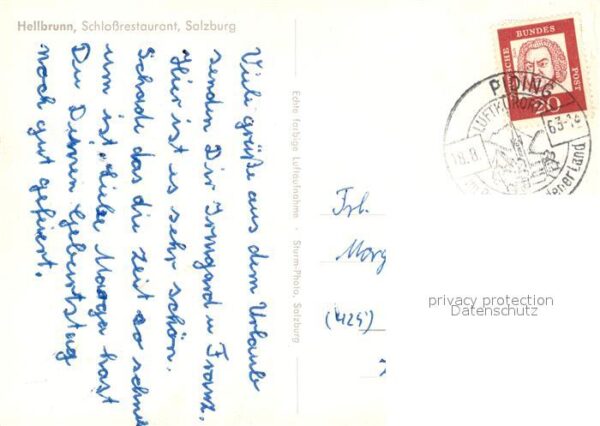 Hellbrunn, Schloßrestaurant, Salzburg
Viele grüße aus dem Urlaub
senden Dir Irmgard u Franz.
Hier ist es sehr schön.
Schade das die zeit so schnell
um ist. Liebe hast
Du Deinen Geburtstag
noch gut gefeiert.
Echte farbige Luftaufnahme · Sturm-Photo, Salzburg
Frl.
Morg
(425)
DEUTSCHE BUNDESPOST
20
PIDING
LUFTKURORT
18.8.
63-14
privacy protection
Datenschutz